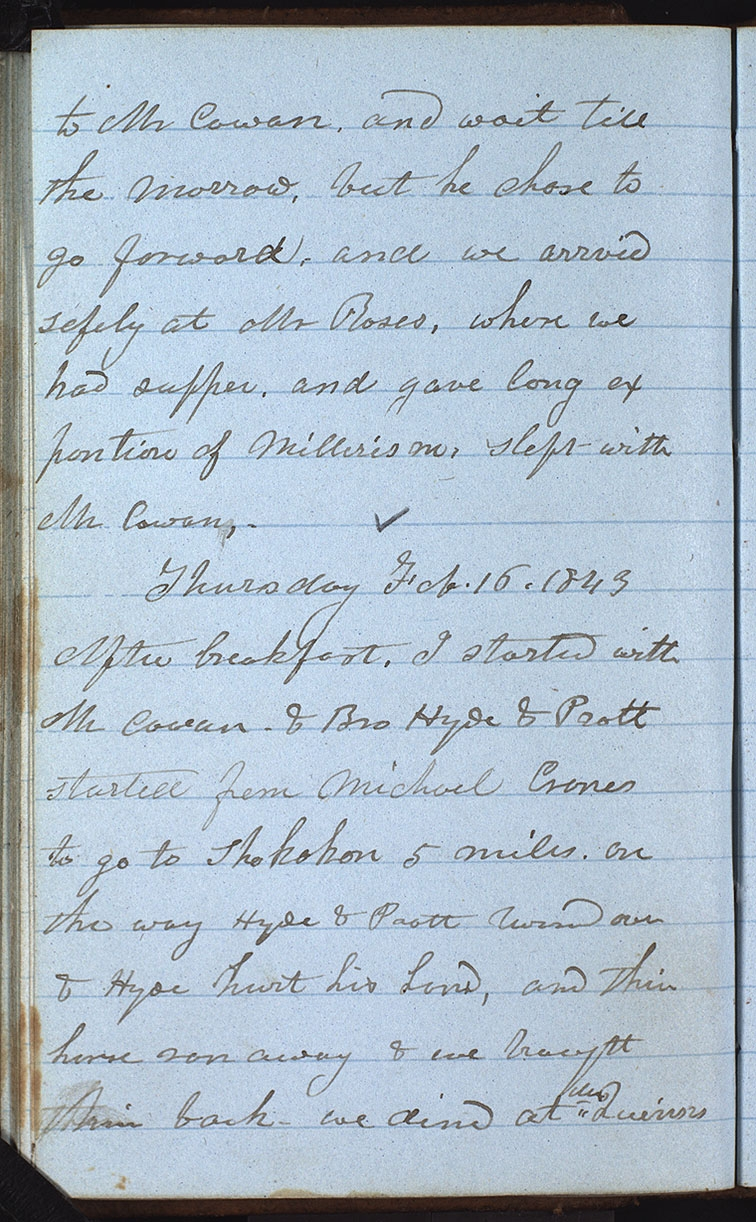 to Mr Cowan. and wait till
the morrow, but he chose to
go forward, and we arrived
safely at Mr Roses, where we
had supper. and gave long ex
position of Millerism, slept with
Mr Cowan,.
Thursday Feb. 16. 1843
After breakfast. I started with
Mr Cowan. & Bro Hyde & Pratt
started from Michael Cranes
to go to Shokokon 5 miles. on
the way Hyde & Pratt turnd over
& Hyde hurt his hand, and their
horse ran away & we brought
them back - we dined at